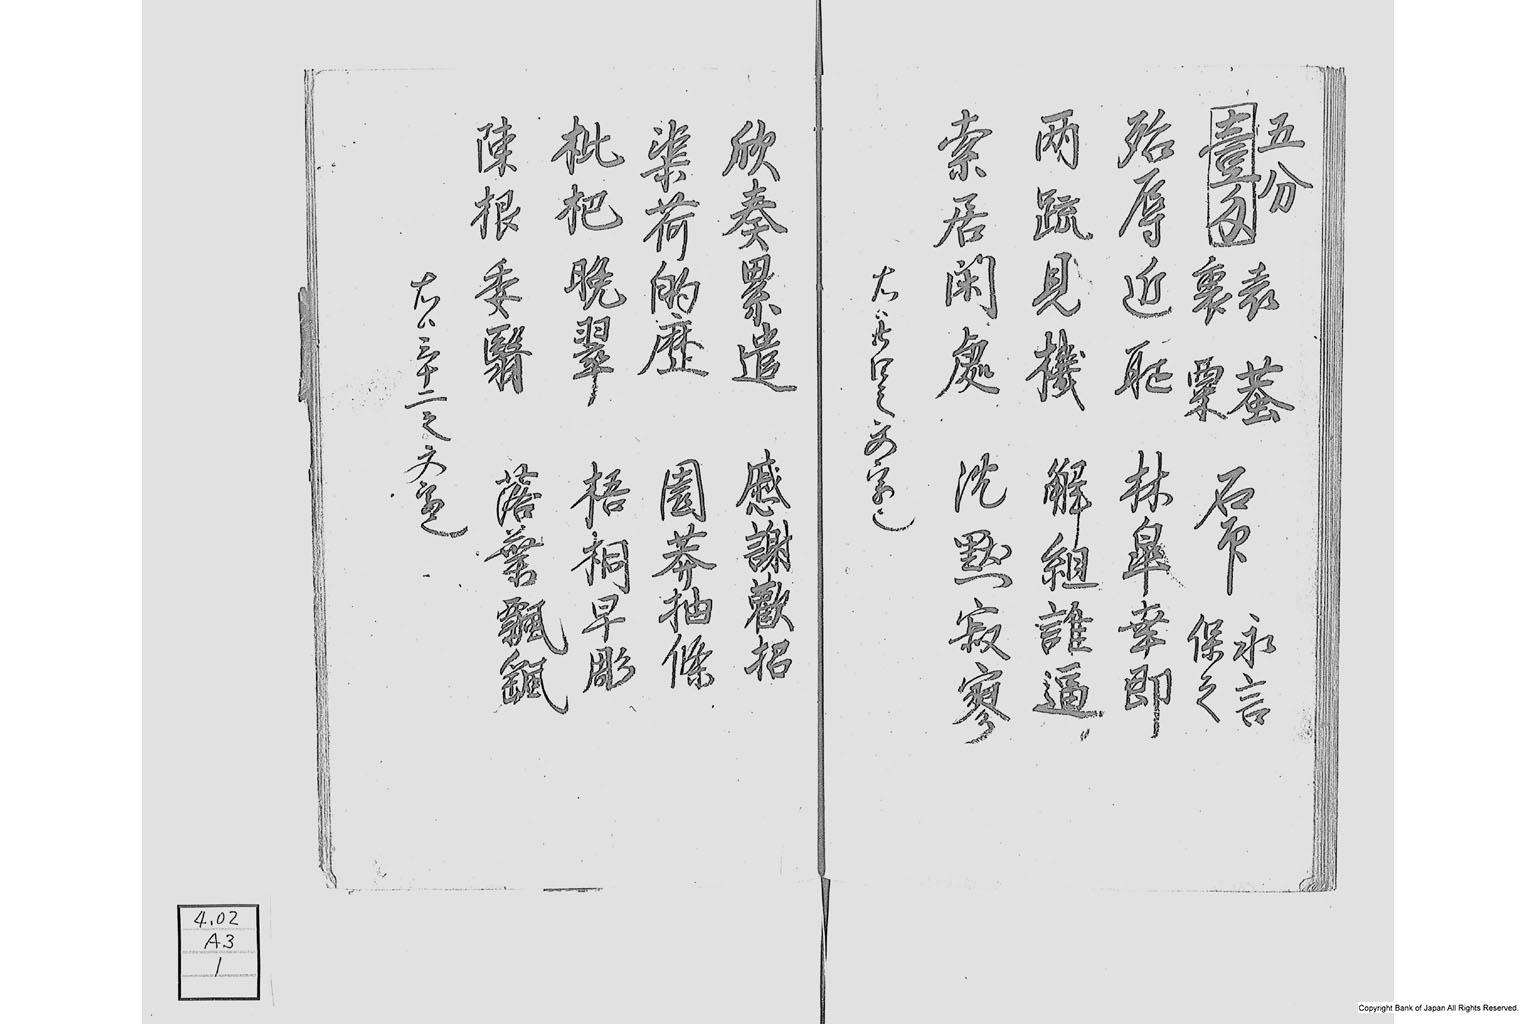 五分
壹匁
袁 蚕
裏 粟
石印
永言
保之
殆辱近恥 林皐幸即
两疏見機 解組誰逼
索居閑處 沈默寂寥
欣奏累遣 慼謝歡招
渠荷的歴 園莽抽條
枇杷晩翠 梧桐早彫
陳根委翳 落葉飄颻
右ハ三十二之文字也
4.02
A3
1
Copyright Bank of Japan All Rights Reserved.